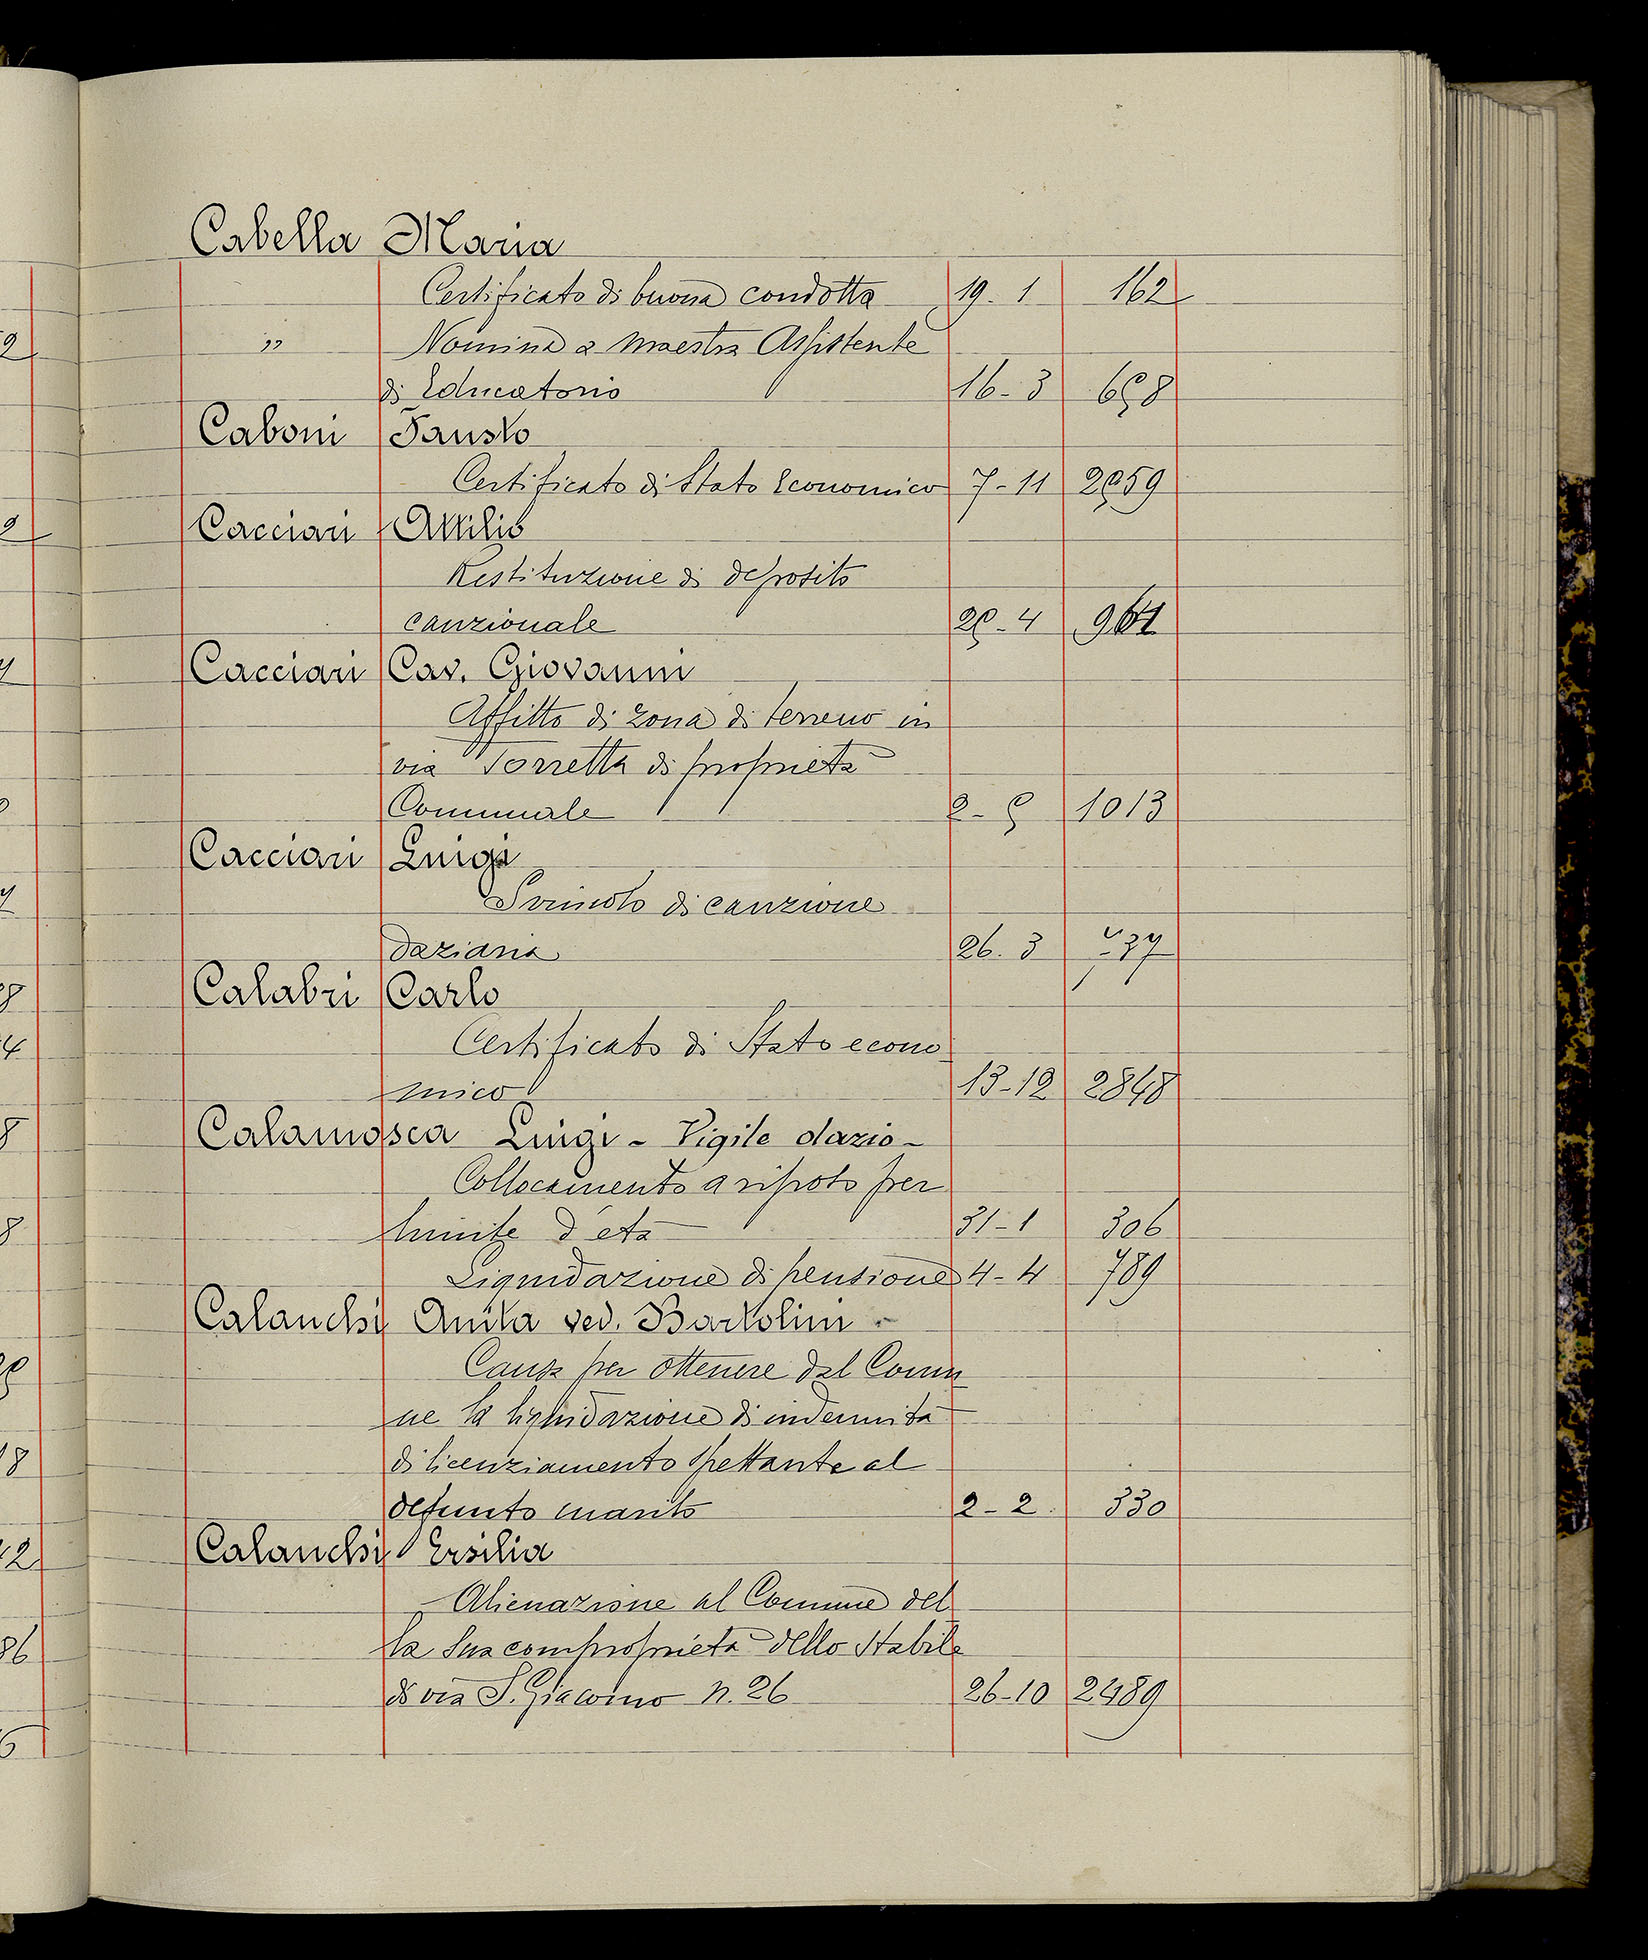 Cabella Maria
Certificato di buona condotta 19-1 162
" Nomina a maestra Assistente
di Educatorio 16-3 658
Caboni Fausto
Certificato di Stato Economico 7-11 2559
Cacciari Attilio
Restituzione di deposito
cauzionale 25-4 961
Cacciari Cav. Giovanni
Affitto di zona di terreno in
via Torretta di proprietà
Comunale 2-5 1013
Cacciari Luigi
Svincolo di cauzione
daziaria 26-3
Calabri Carlo
Certificato di Stato econo
mico 13-12 2848
Calamosca Luigi - Vigile dazio -
Collocamento a riposo per
limite d'età 31-1 306
Liquidazione di pensione 4-4 789
Calanchi Anita ved. Bartolini -
Causa per ottenere dal Comu
ne la liquidazione di indennità
di licenziamento spettante al
defunto marito 2-2 330
Calanchi Ersilia
Alienazione al Comune del
la sua comproprietà dello stabile
di via S. Giacomo n. 26 26-10 2489